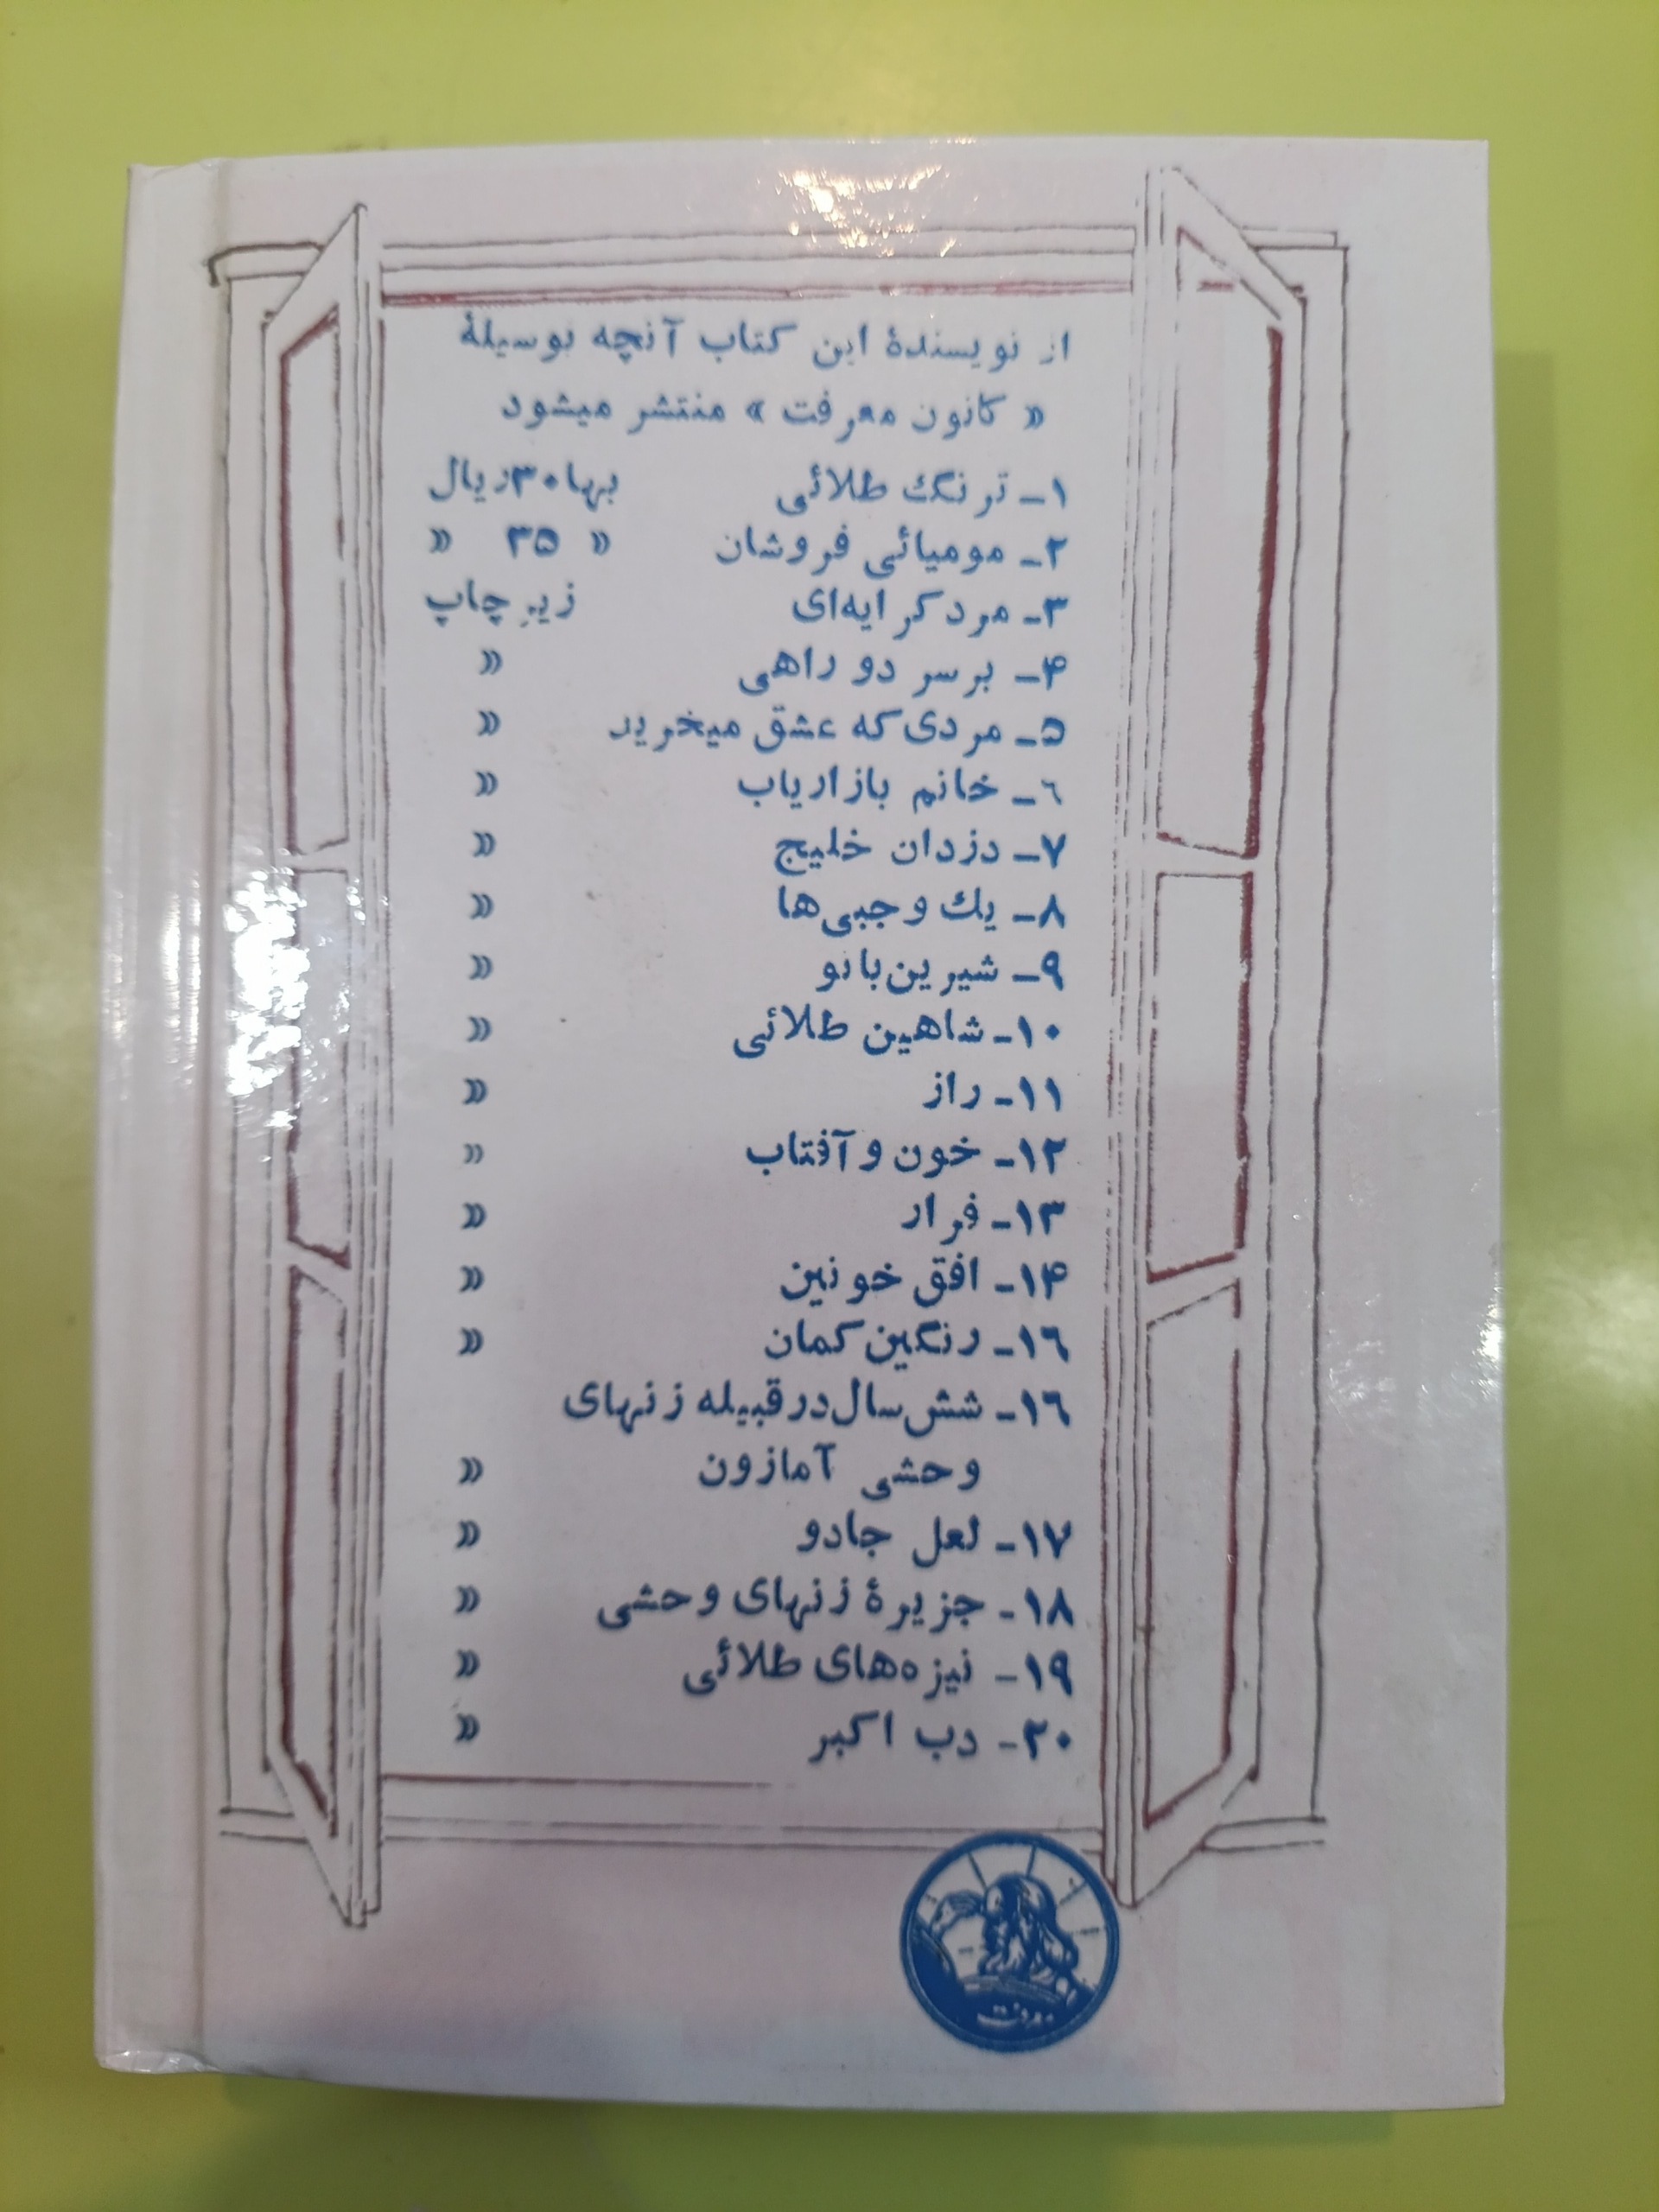 از نویسندهٔ این کتاب آنچه بوسیلهٔ
« کانون معرفت » منتشر میشود
۱ـ ترنگ طلائی بها۳۰ریال
۲ـ مومیائی فروشان » ۳۵ »
۳ـ مرد کرایه‌ای زیر چاپ
۴ـ برسر دو راهی »
۵ـ مردی‌که عشق میخرید »
٦ـ خانم بازاریاب »
۷ـ دزدان خلیج »
۸ـ یك وجبی‌ها »
۹ـ شیرین‌بانو »
۱۰ـ شاهین طلائی »
۱۱ـ راز »
۱۲ـ خون و آفتاب »
۱۳ـ فرار »
۱۴ـ افق خونین »
۱٦ـ رنگین‌کمان »
۱٦ـ شش‌سال‌درقبیله زنهای
وحشی آمازون »
۱۷ـ لعل جادو »
۱۸ـ جزیرهٔ زنهای وحشی »
۱۹ـ نیزه‌های طلائی »
۲۰ـ دب اکبر »
معرفت